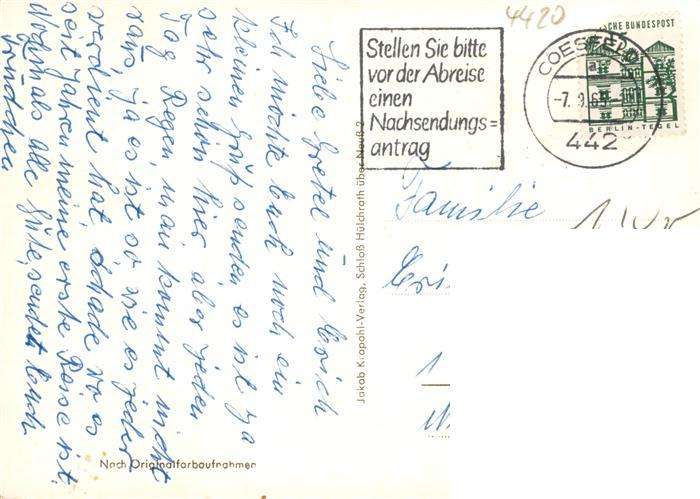 4420
Stellen Sie bitte
vor der Abreise
einen
Nachsendungs=
antrag
COESFELD
-7. 9. 65
442
CHE BUNDESPOST
BERLIN-TEGEL
Liebe Gretel und Erich
Ich möchte Euch noch ein
kleinen Gruß senden, es ist ja
sehr schön hier aber jeden
Tag Regen man kommt nicht
raus ja es ist so wie es jeder
verdient hat. Schade wo es
seit Jahren meine erste Reise ist.
Nochmals alle Gute, sendet Euch
Jakob Krapohl-Verlag, Schloß Hülchrath über Neuß 2
Nach Originalfarbaufnahmen
Familie
Eri
1